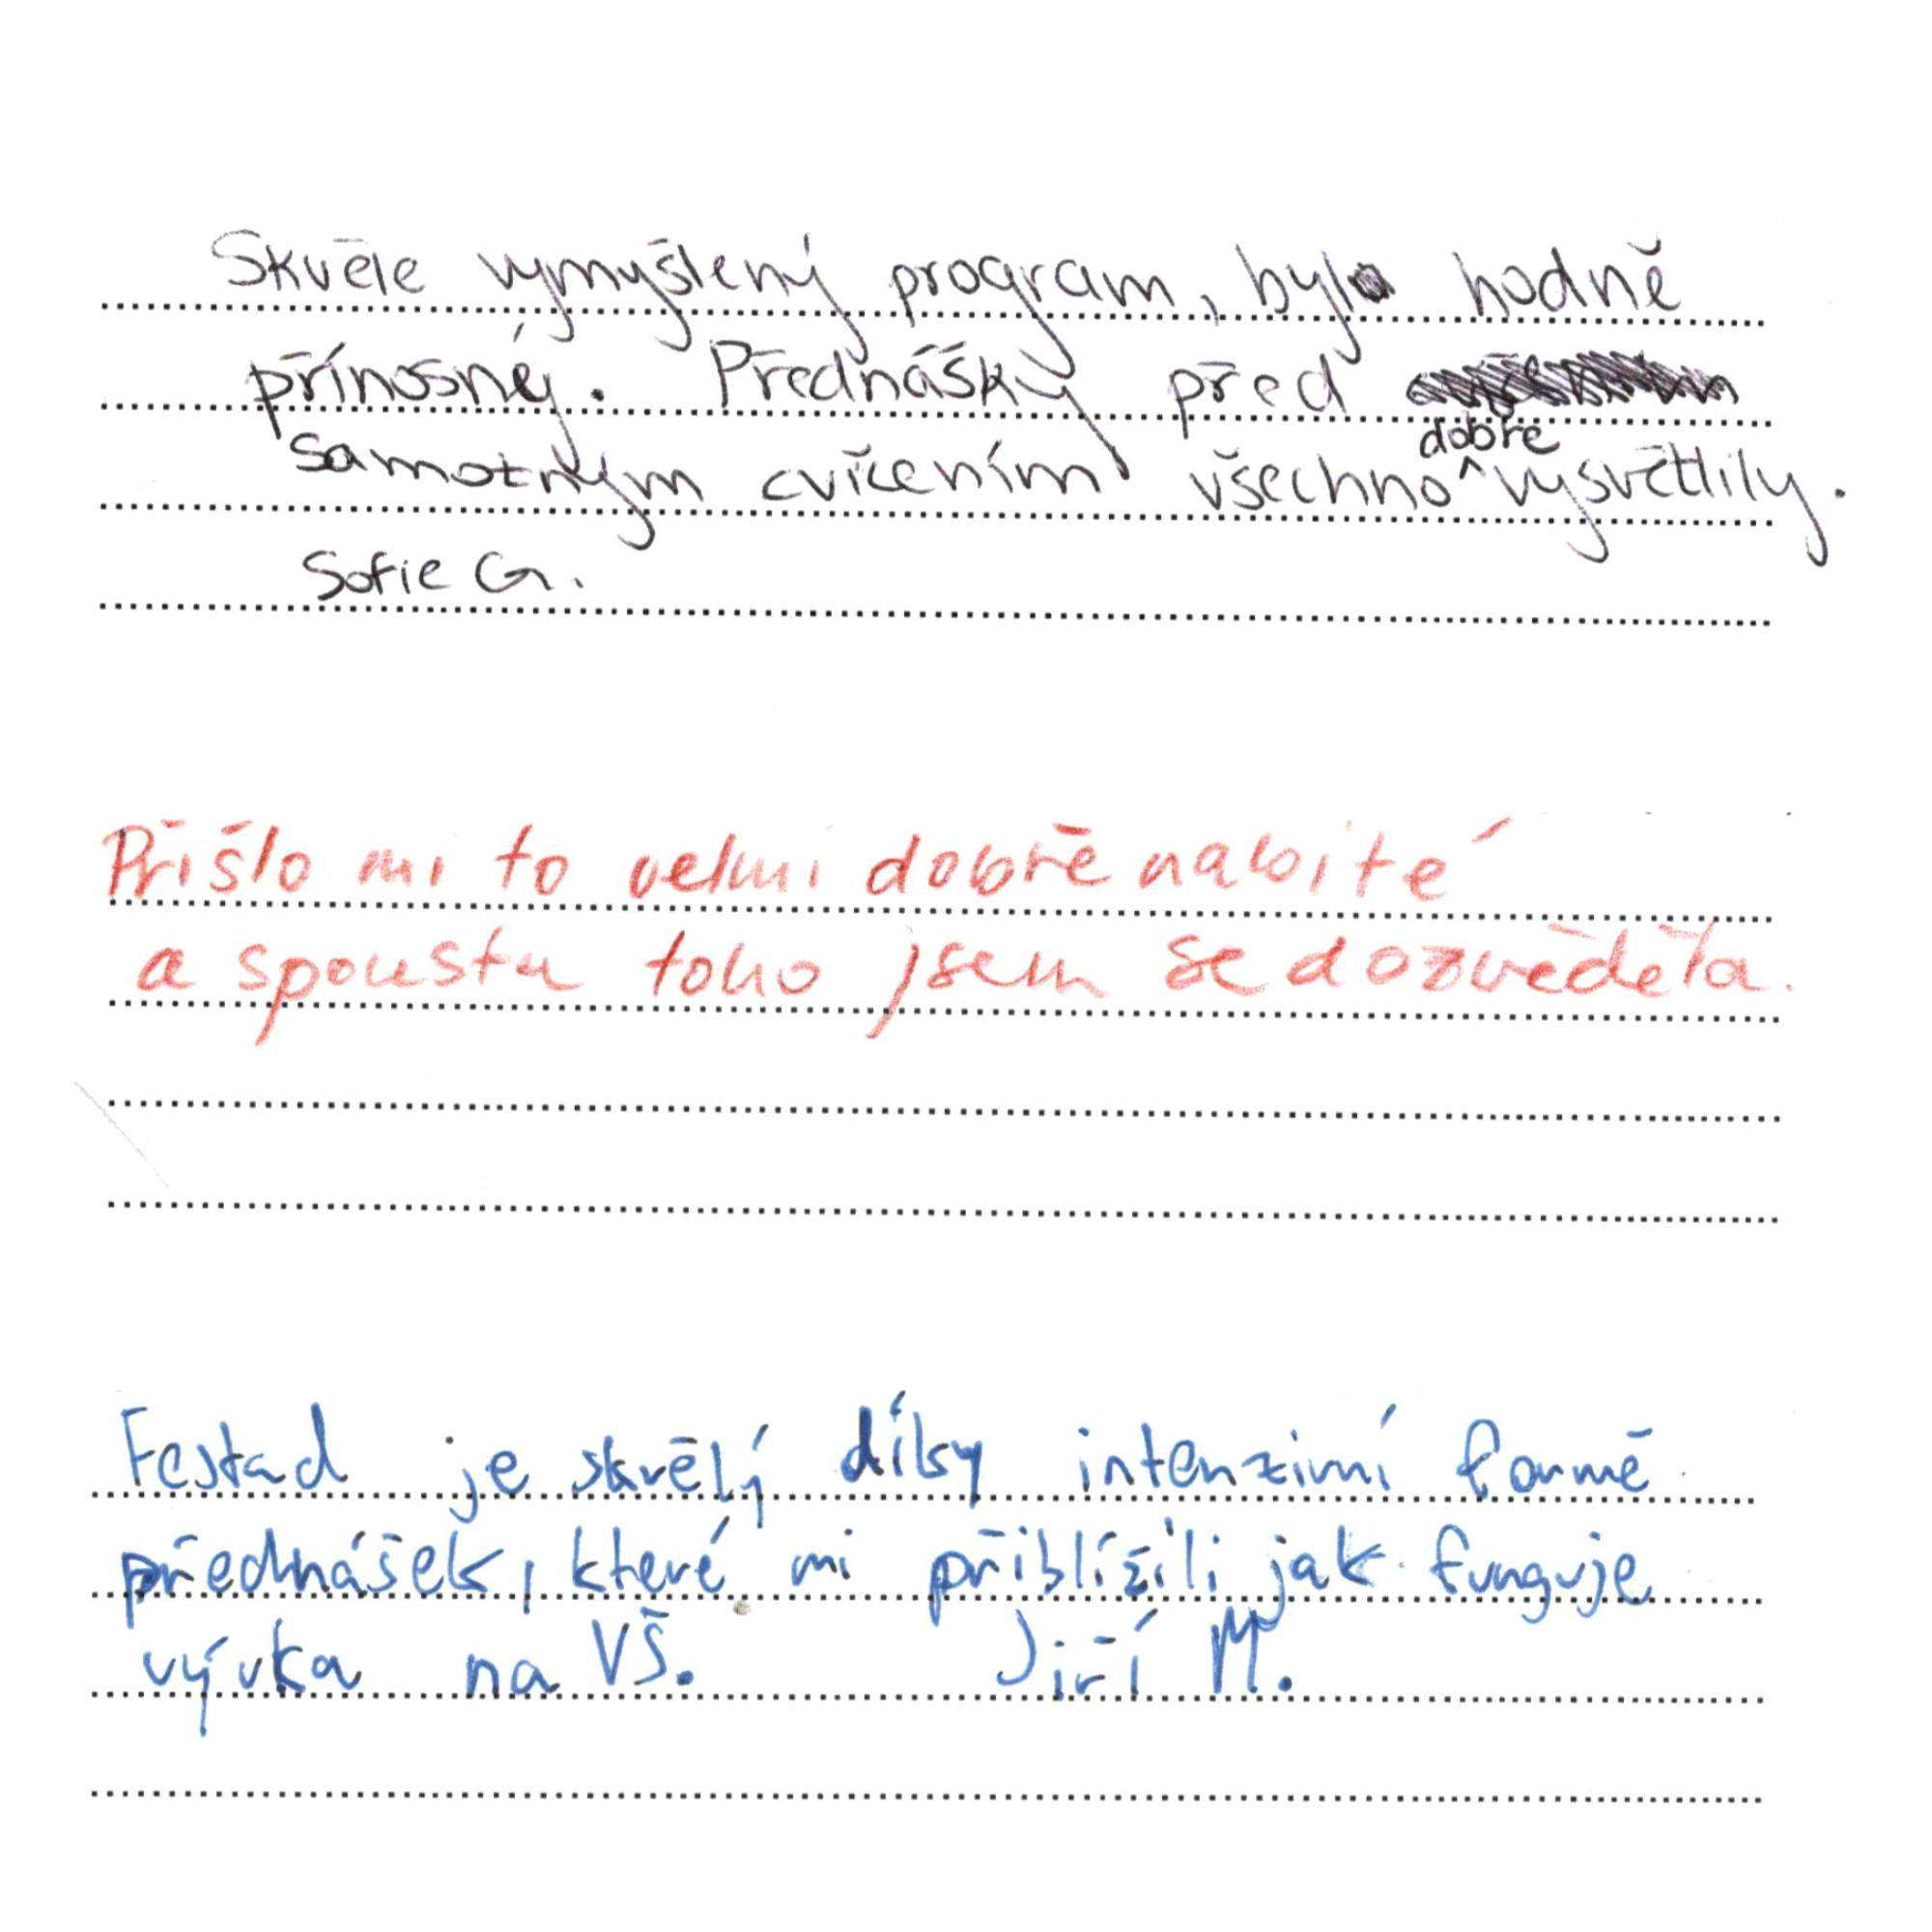 Skvěle vymyšlený program, byl hodně
přínosný. Přednášky před
samotným cvičením všechno dobře vysvětlily.
Sofie G.
Přišlo mi to velmi dobře nabité
a spoustu toho jsem se dozvěděla.
Festad je skvělý díky intenzivní formě
přednášek, které mi přiblížili jak funguje
výuka na VŠ. Jiří M.